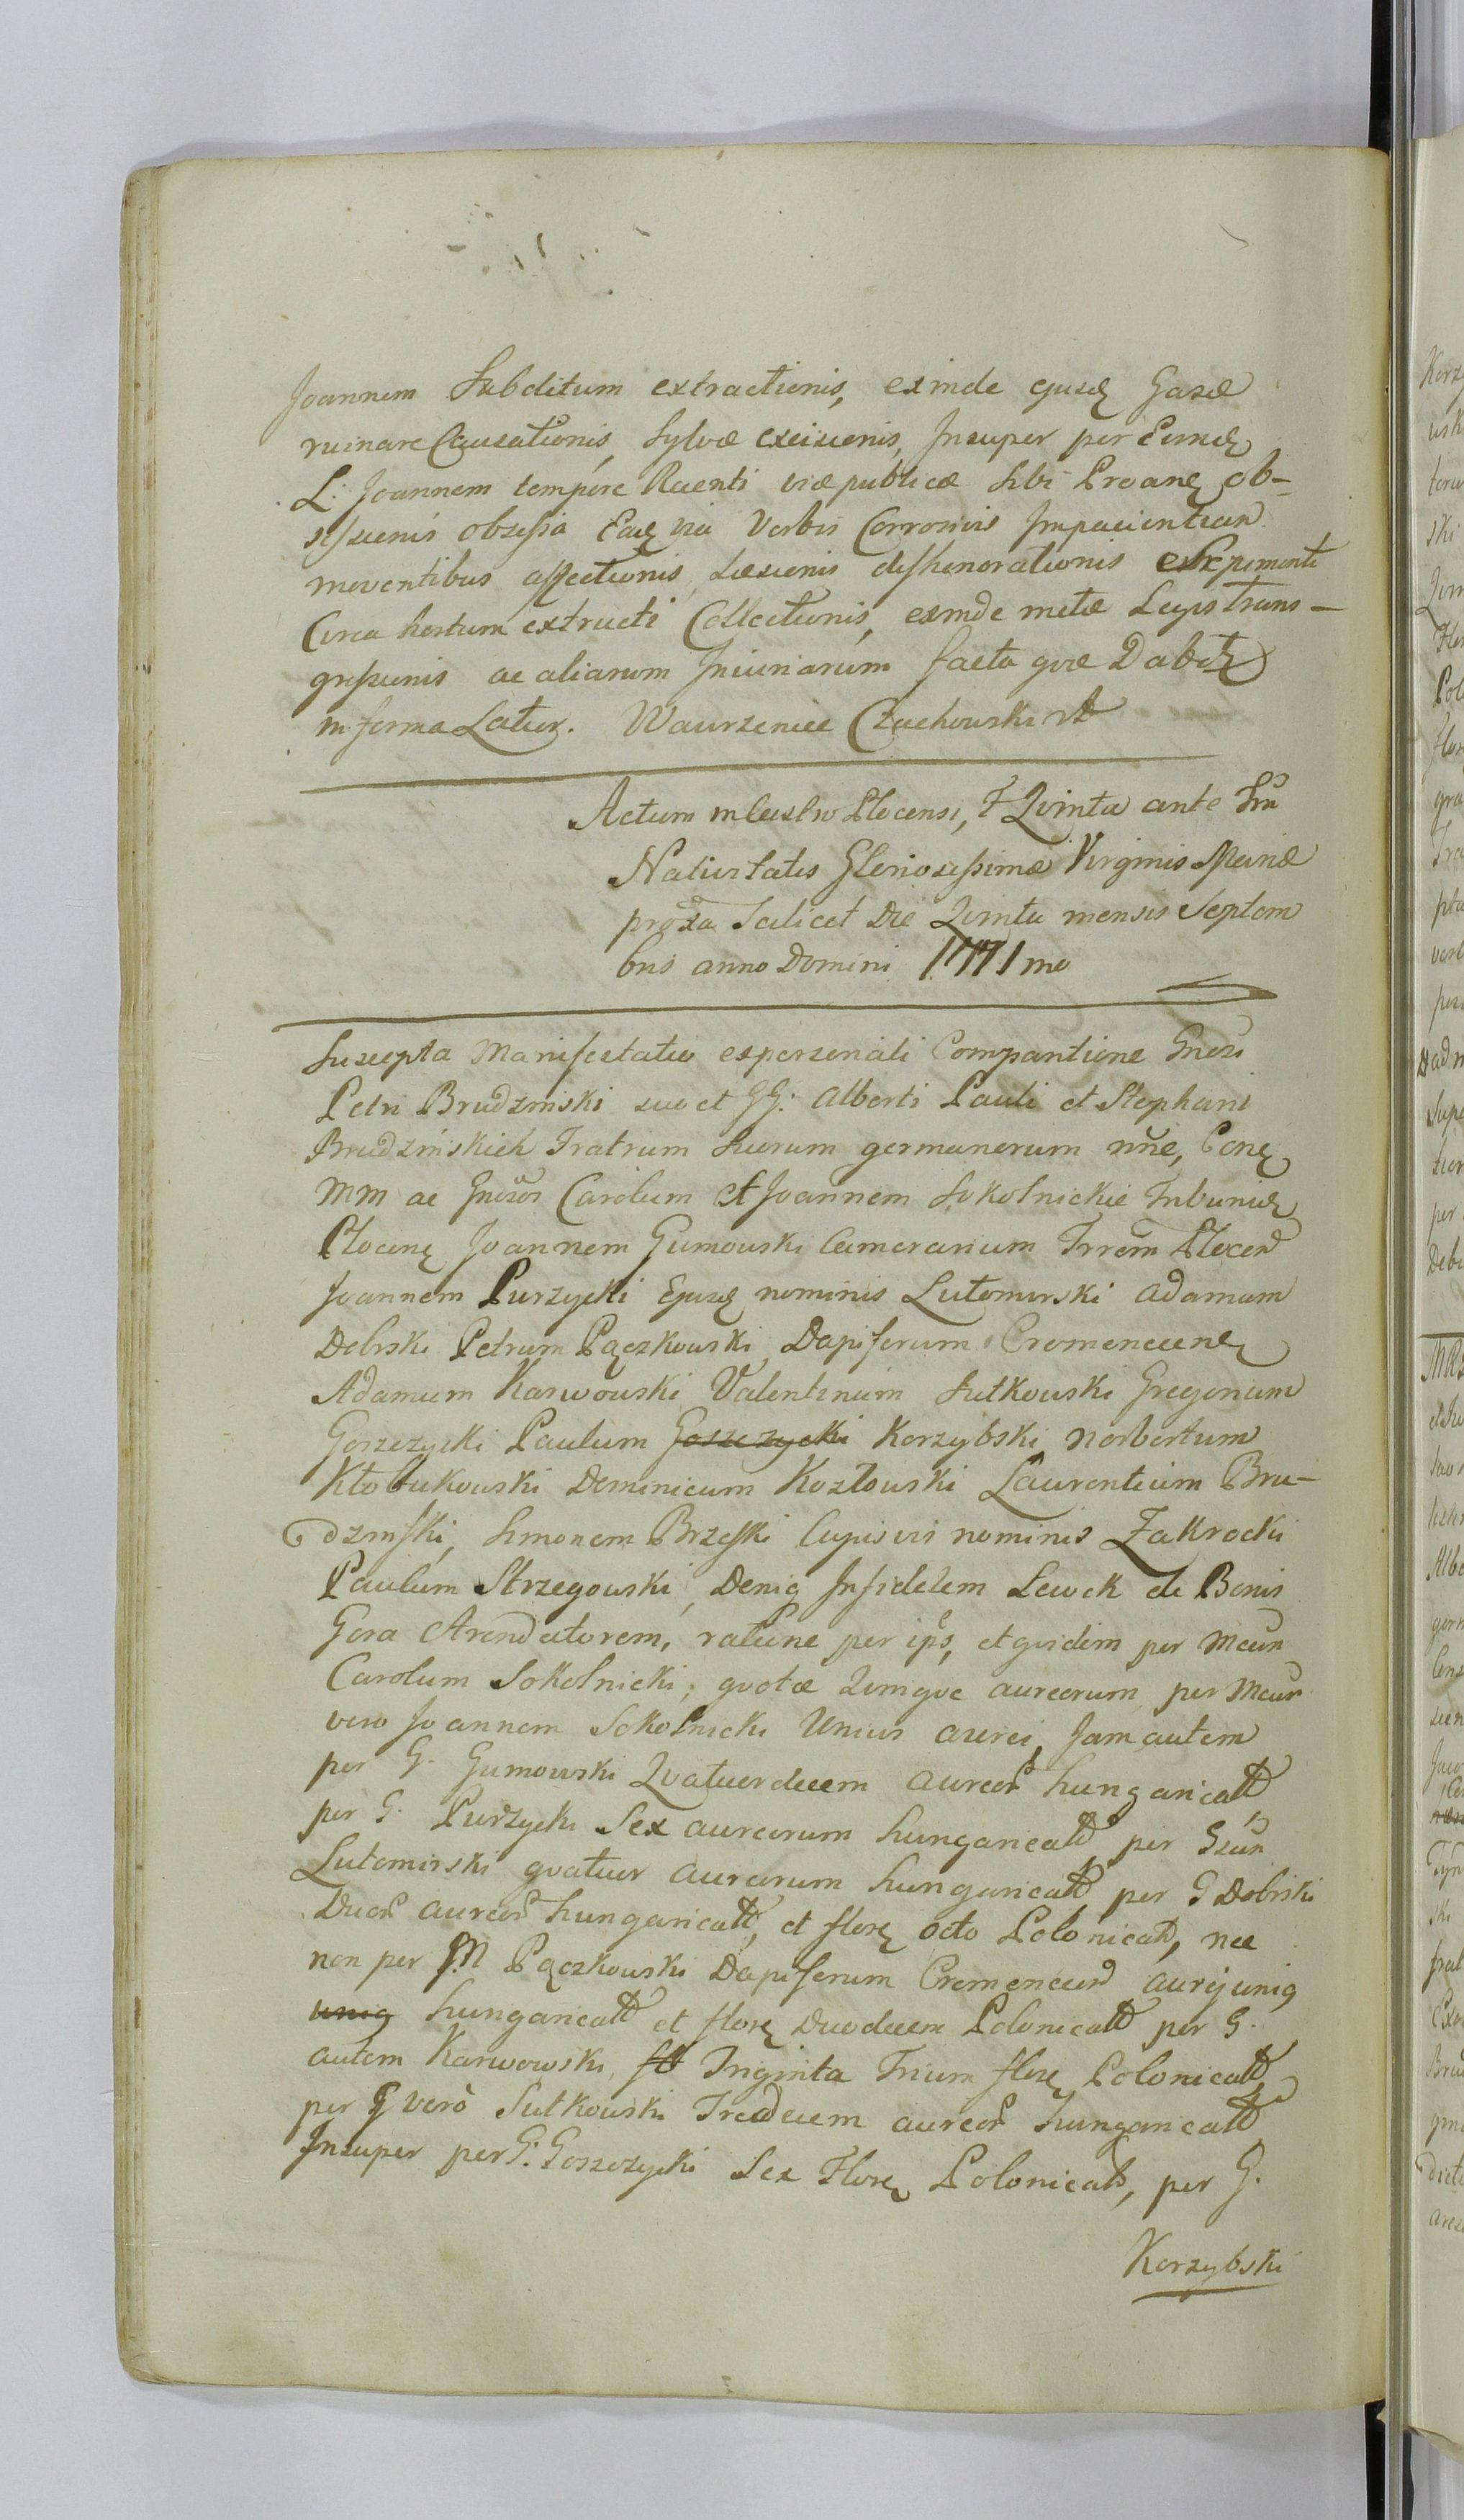 Joannem Subditum extractionis, exinde ejusdę Gasæ
ruinare Causationis, Sylvæ excisionis, Insuper per Eundę
L: Joannem tempore Recenti viæ publicæ Sibi Proanę ob-
sessionis obsessia Eadę via Verbis Corrosivis Impacientiam
moventibus affectionis Læsionis dishonorationis
Circa hortum extructi Collectionis, exinde metæ Legis trans-
gressionis ac aliarum Iniuriarum facta quæ Dabitę
in forma Latioę. Wawrzeniec Czachowski
Actum in Castro Plocensi, F Quinta ante Fm
Nativitatis Gloriosissimæ Virginis Mariæ
proxa Scilicet Die Quinta mensis Septem
bris anno Domini 1771mo
Suscepta Manifestatio ex personali Comparitione Gnosi
Petri Brudzinski suo et GG: Alberti Pauli et Stephani
Brudzinskich Fratrum Suorum germanorum nñe, Conę
MM ac Gnosos Carolum et Joannem Sokolnickie Tribunidę
Plocenę Joannem Gumowski Camerarium Trrem Plocen
Joannem Purzycki Ejusdę nominis Lutomirski Adamum
Dobrski Petrum Pączkowski Dapiferum Cremenecenę
Adamum Karwowski Valentinum Sutkowski Gregorium
Goszczycki Paulum Goszczycki Korzybski Norbertum
Kłobukowski Dominicum Kozłowski Laurentium Bru-
dzinski, Simonem Brzeski Cujusvis nominis Zakrocki
Paulum Strzegowski, Deniq Infidelem Lewek de Bonis
Gora Arendatorem, ratione per ipos, et quidem per Mcum
Carolum Sokolnicki; quotæ Quinque aureorum per Mcum
vero Joannem Sokolnicki Unius aurei, Jam autem
per G. Gumowski Quatuordecem aureor hungaricall
per G. Purzycki Sex aureorum hungaricall per Gsum
Lutomirski quatuor aureorum hungaricall per G Dobrski
Duor aureor hungaricall, et florę octo Polonicall, nec
non per M Pączkowski Dapiferum Cremenecen aurej uniq
uniq hungaricall et florę Duodecem Polonicall per G.
autem Karwowski fl Triginta Trium florę Polonicall
per G verò Sutkowski Tredecem aureor hungaricall
Insuper per G: Goszczycki Sex Florę Polonicall, per G.
Korzybski